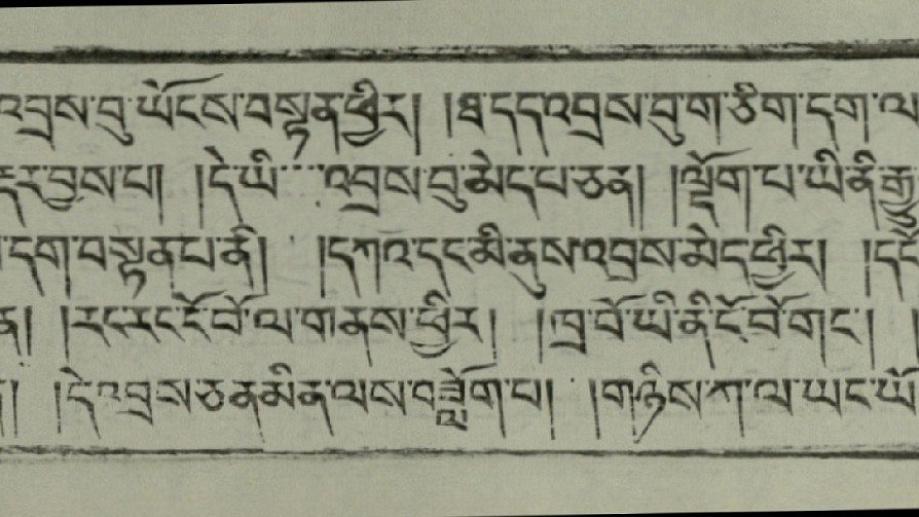 འབྲས་བུ་ཡོངས་བསྟན་ཕྱིར། །ཐ་དད་འབྲས་བུ་ག་ཅིག་དག་ལ
དར་བྱས་པ། །དེ་ཡི་་་་འབྲས་བུ་མེད་པ་ཅན། །ལྡོག་པ་ཡི་ནི་རྒྱུ
དག་བསྟན་པ་ནི། །དཀའ་དང་མི་ནུས་འབྲས་མེད་ཕྱིར། །དངོ
ན། །རང་རང་ངོ་བོ་ལ་གནས་ཕྱིར། །ཁྲ་བོ་ཡི་ནི་ངོ་བོ་གང་། །
། །དེ་འབྲས་ཅན་མིན་ལས་བཟློག་པ། །གཉིས་ཀ་ལ་ཡང་ཡོ